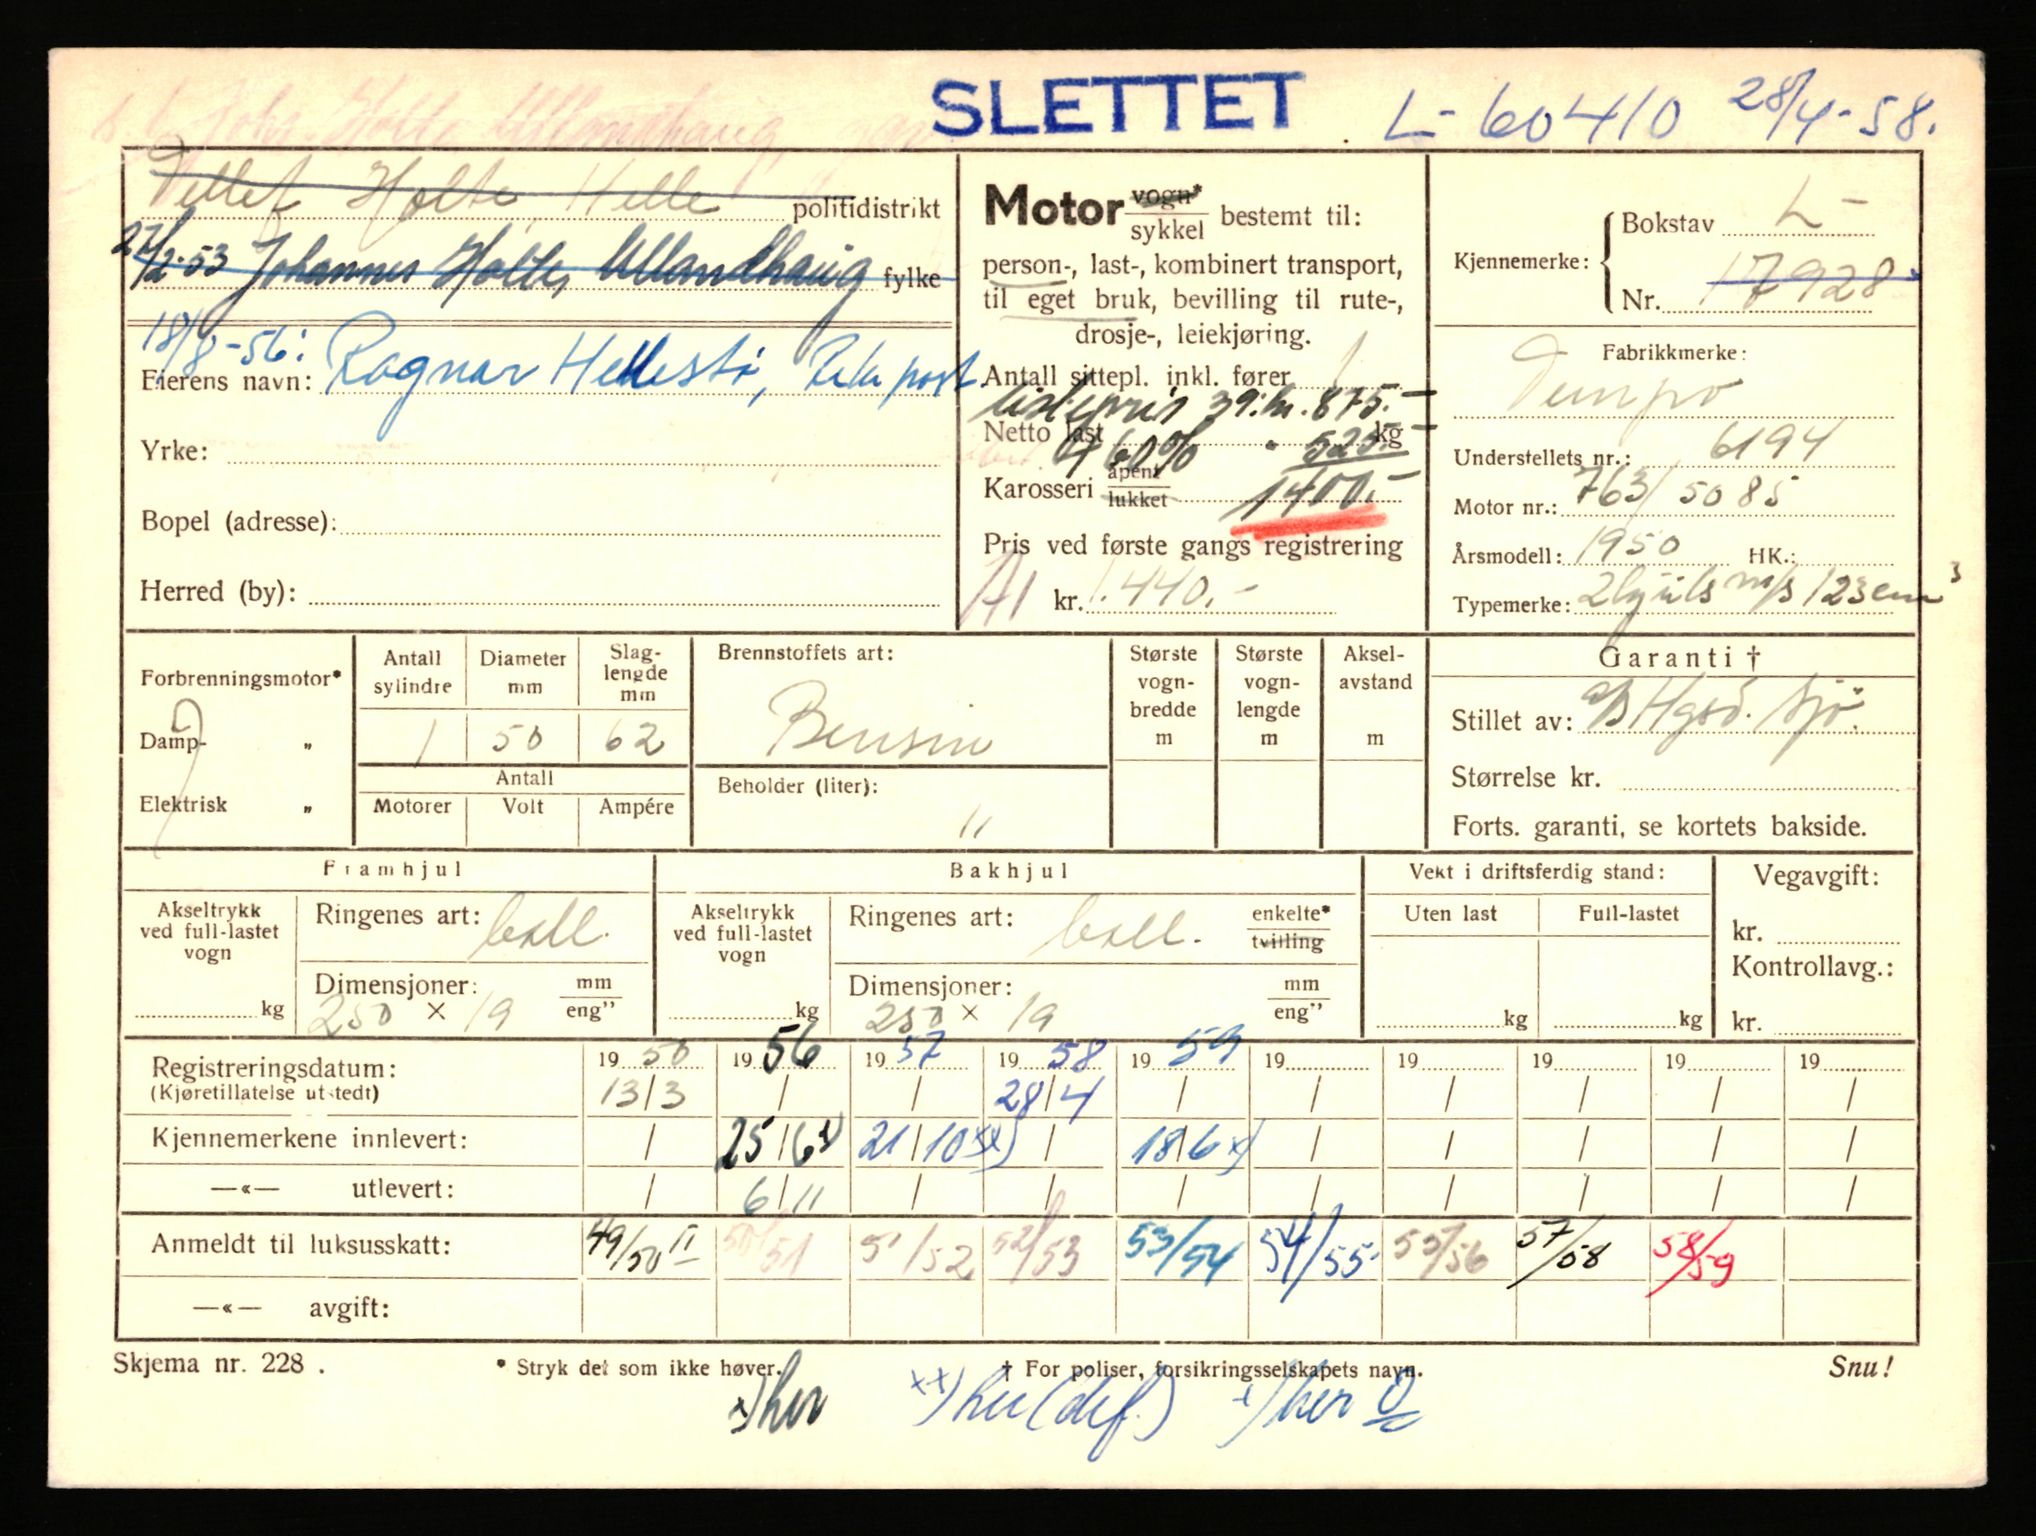 SLETTET L-60410 28/4-58.
Holte, Helle politidistrikt
27/2-53 Johannes Holte, Ullandhaug fylke
18/8-56:
Eierens navn: Ragnar Hellestø, post.
Yrke:
Bopel (adresse):
Herred (by):
Motor vogn* sykkel bestemt til:
person-, last-, kombinert transport,
til eget bruk, bevilling til rute-,
drosje-, leiekjøring.
Antall sittepl. inkl. fører 1
listepris 875.-
Netto last kg
+ 60% 525-
Karosseri åpent lukket 1400.-
Pris ved første gangs registrering
A1 kr. 1.440.-
Kjennemerke: Bokstav L-
Nr. 17928
Fabrikkmerke:
Tempo
Understellets nr.: 6194
Motor nr.: 763/5085
Årsmodell: 1950 HK.:
Typemerke: 2hjuls m/s 123cm3
Forbrenningsmotor*
Damp- „
Elektrisk „
Antall sylindre Diameter mm Slaglengde mm
1 50 62
Antall
Motorer Volt Ampére
Brennstoffets art:
Bensin
Beholder (liter):
11
Største vognbredde m
Største vognlengde m
Akselavstand m
Garanti †
Stillet av:
Størrelse kr.
Forts. garanti, se kortets bakside.
Framhjul Bakhjul Vekt i driftsferdig stand: Vegavgift:
Akseltrykk ved full-lastet vogn kg
Ringenes art: ball.
Dimensjoner: mm eng"
250 × 19
Akseltrykk ved full-lastet vogn kg
Ringenes art: ball. enkelte* tvilling
Dimensjoner: mm eng"
250 × 19
Uten last Full-lastet
kg kg
kr.
Kontrollavg.:
kr.
Registreringsdatum: 1950 1956 1957 1958 1959 19 19 19 19 19
(Kjøretillatelse utstedt) 13/3 / / 28/4 / / / / / /
Kjennemerkene innlevert: / 25/6x) 21/10xx) / 18/6x) / / / / /
—«— utlevert: / 6/11 / / / / / / / /
Anmeldt til luksusskatt: 49/50 II 50/51 51/52 52/53 53/54 54/55 55/56 57/58 58/59
—«— avgift:
Skjema nr. 228. * Stryk det som ikke høver. † For poliser, forsikringsselskapets navn. Snu!
x) her xx) her (def.) x) her